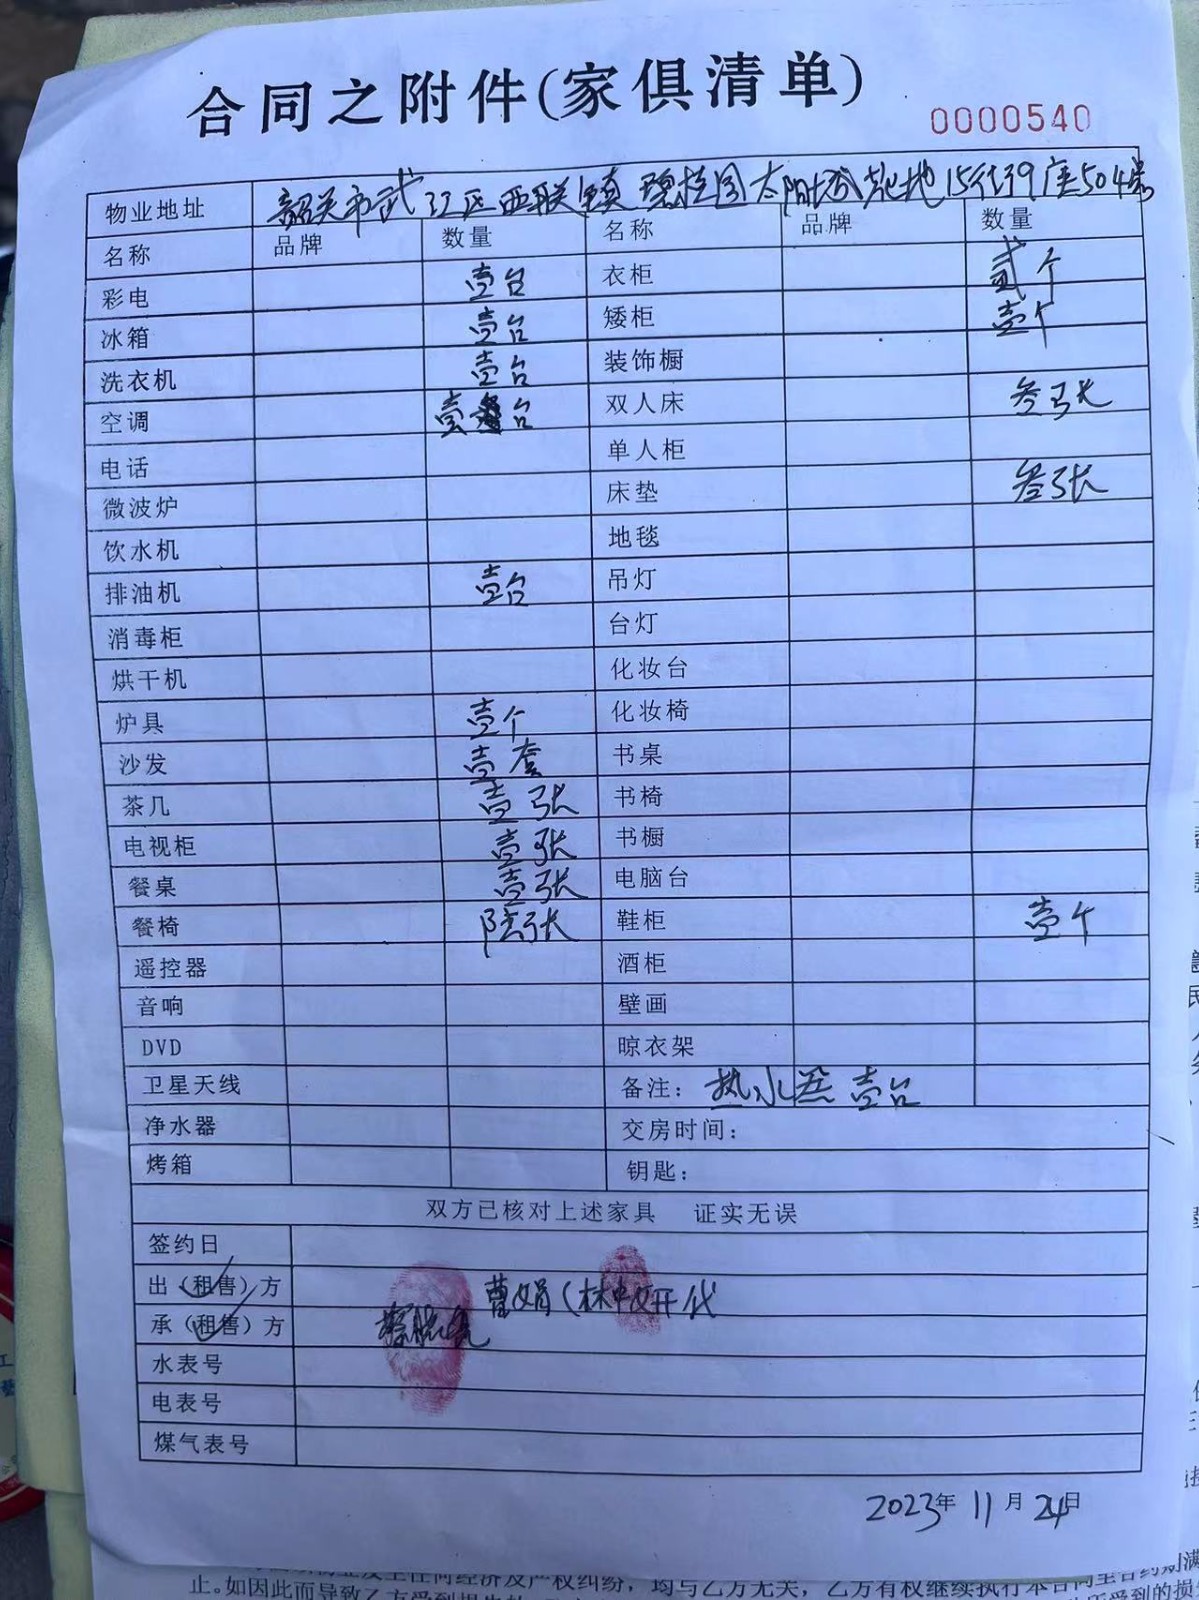 合同之附件(家俱清单)
0000540
物业地址 韶关市武江区西联镇碧桂园太阳城 15街39座504房
名称 品牌 数量 名称 品牌 数量
彩电 壹台 衣柜 贰个
冰箱 壹台 矮柜 壹个
洗衣机 壹台 装饰橱
空调 壹台 双人床 叁张
电话 单人柜
微波炉 床垫 叁张
饮水机 地毯
排油机 壹台 吊灯
消毒柜 台灯
烘干机 化妆台
炉具 壹个 化妆椅
沙发 壹套 书桌
茶几 壹张 书椅
电视柜 壹张 书橱
餐桌 壹张 电脑台
餐椅 陆张 鞋柜 壹个
遥控器 酒柜
音响 壁画
DVD 晾衣架
卫星天线 备注: 热水器 壹台
净水器 交房时间:
烤箱 钥匙:
双方已核对上述家具 证实无误
签约日
出(租售)方 曹娟(林中妍代
承(租售)方
水表号
电表号
煤气表号
2023年 11月 24日
止。如因此而导致乙方受到损失
均与乙方无关,乙方有权继续执行本合同至合约期满